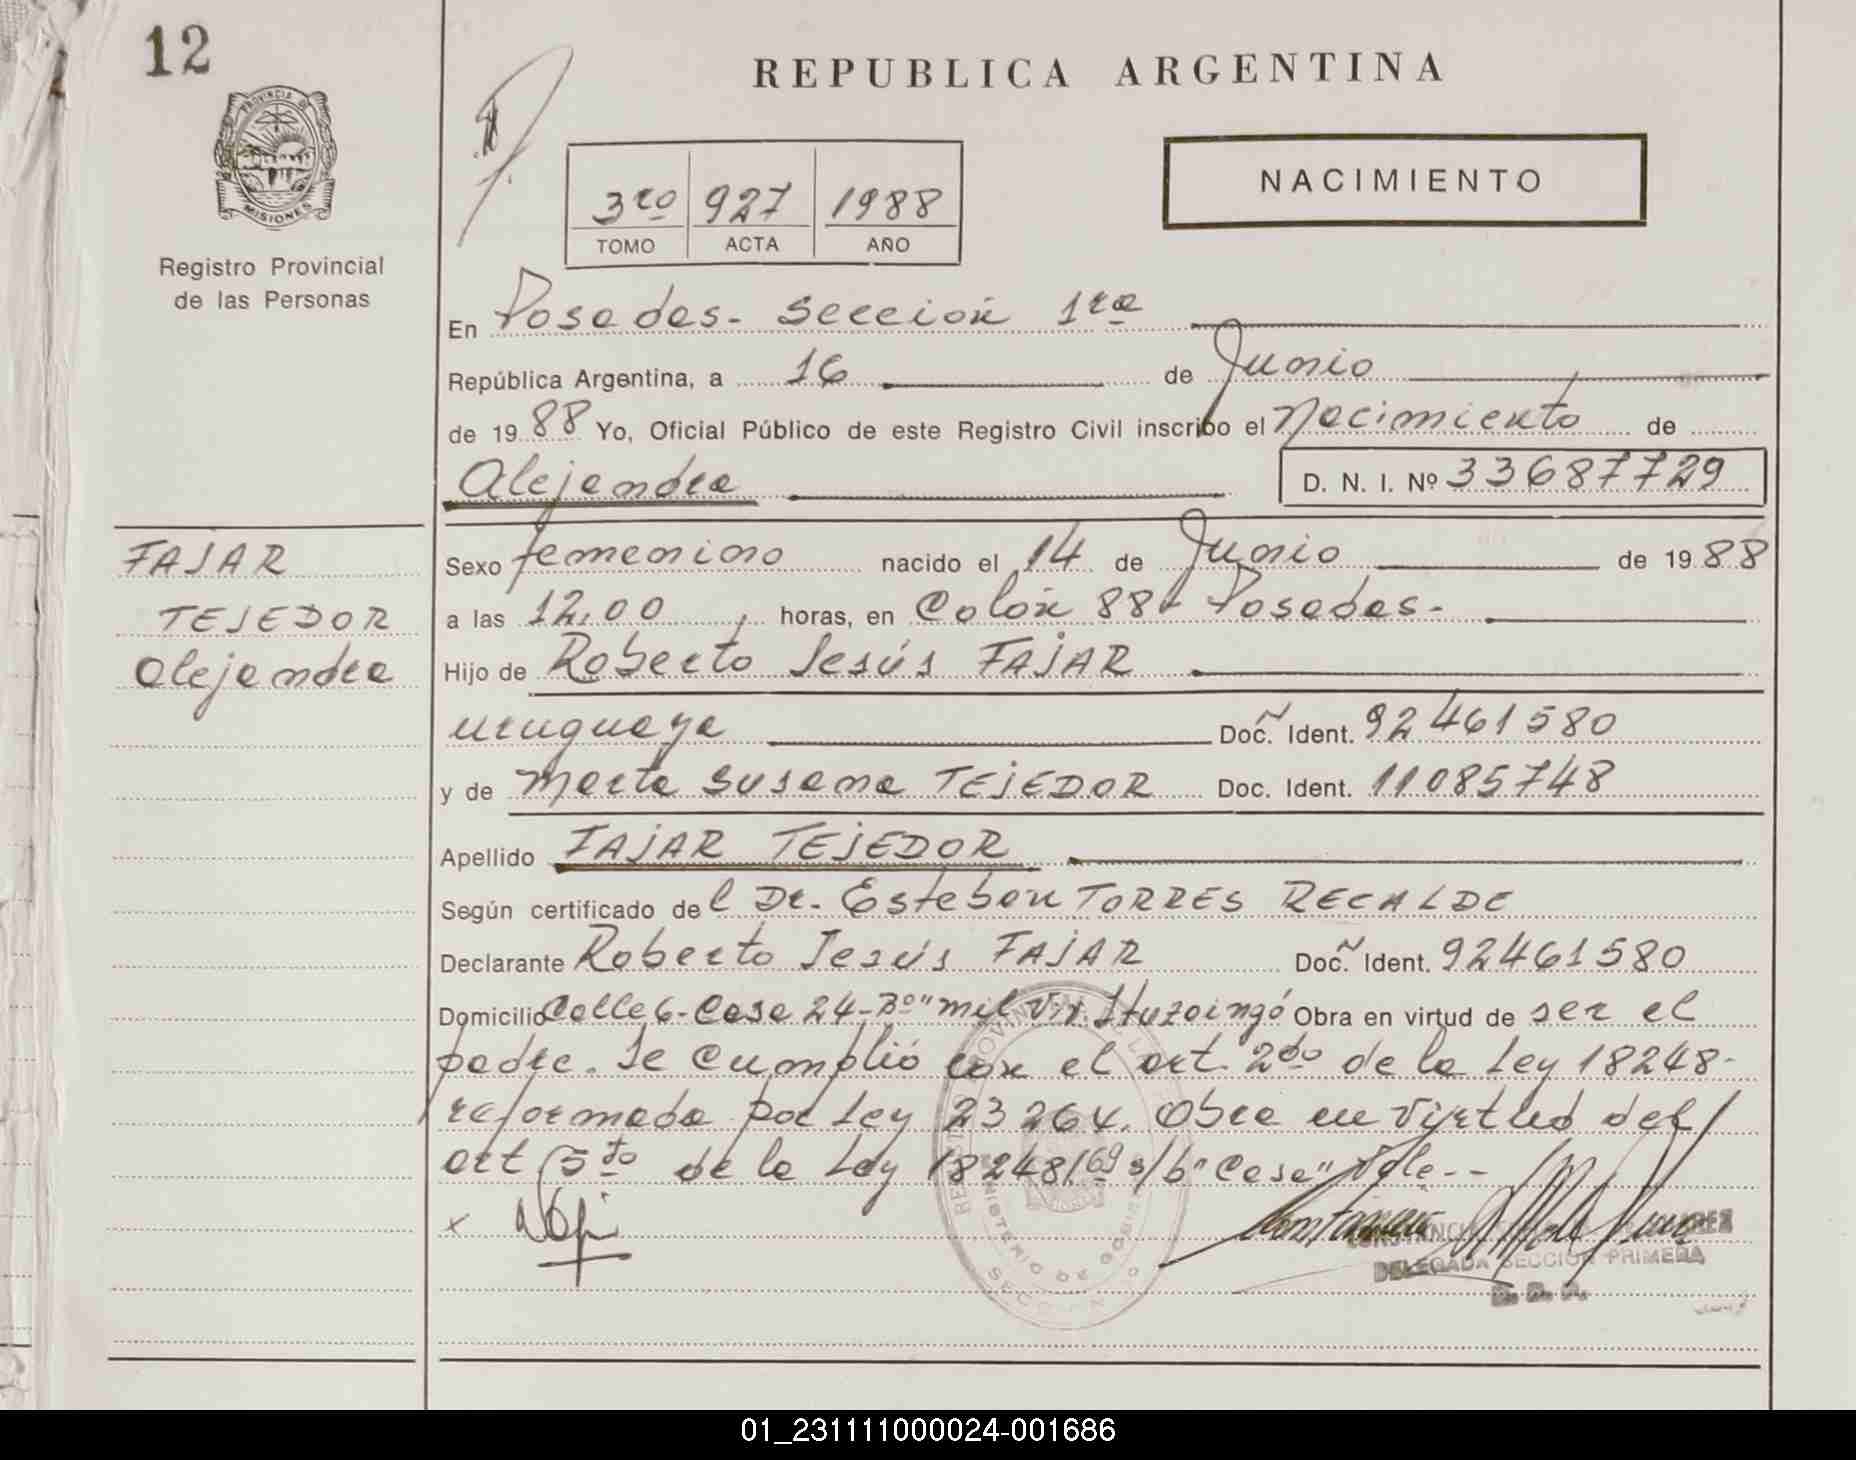 12
REPUBLICA ARGENTINA
PROVINCIA DE
MISIONES
Registro Provincial
de las Personas
3ro 927 1988
TOMO ACTA AÑO
NACIMIENTO
En Posadas- Sección 1ra
República Argentina, a 16 de Junio
de 1988 Yo, Oficial Público de este Registro Civil inscribo el Nacimiento de
Alejandra D. N. I. Nº 33687729
FAJAR
TEJEDOR
Alejandra
Sexo femenino nacido el 14 de Junio de 1988
a las 12,00 horas, en Colón 881 Posadas-
Hijo de Roberto Jesús FAJAR
uruguaya Doc. Ident. 92461580
y de Marta Susana TEJEDOR Doc. Ident. 11085748
Apellido FAJAR TEJEDOR
Según certificado del Dr. Esteban TORRES RECALDE
Declarante Roberto Jesús FAJAR Doc. Ident. 92461580
Domicilio Calle 6- Casa 24- Bo "mil Viv. Ituzaingó Obra en virtud de ser el
padre. Se cumplió con el art. 2do de la Ley 18248-
reformada por Ley 23264. Obra en virtud del
art 5to de la Ley 18248/69 s/b "Casa" Vale--
x
DELEGADA SECCION PRIMERA
01_231111000024-001686